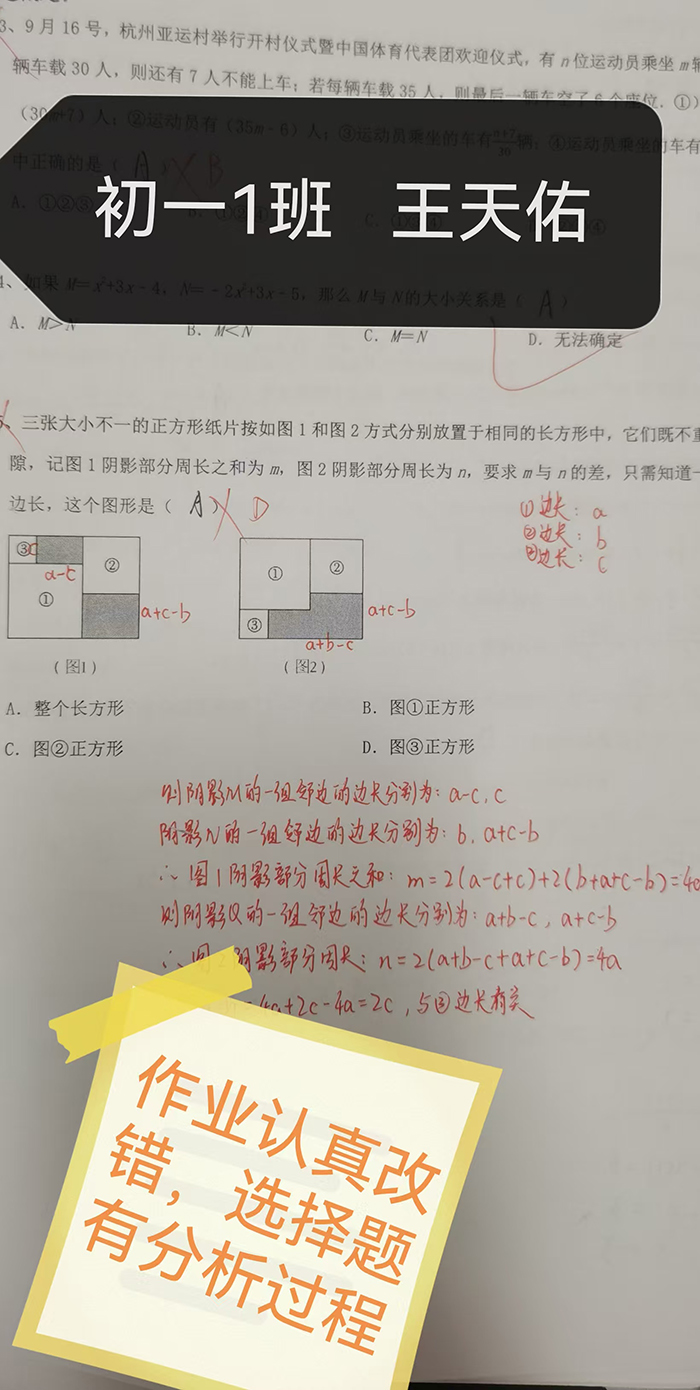 3、9月16号，杭州亚运村举行开村仪式暨中国体育代表团欢迎仪式，有n位运动员乘坐m辆
辆车载30人，则还有7人不能上车；若每辆车载35人，则最后一辆车空了6个座位．①
（30m+7）人；②运动员有（35m-6）人；③运动员乘坐的车有(n+7)/30辆；④运动员乘坐的车有
中正确的是（ A ） B
A．①②③
初一1班 王天佑
4、如果M=x²+3x-4，N=-2x²+3x-5，那么M与N的大小关系是（ A ）
A．M>N B．M<N C．M=N D．无法确定
5、三张大小不一的正方形纸片按如图1和图2方式分别放置于相同的长方形中，它们既不重
隙，记图1阴影部分周长之和为m，图2阴影部分周长为n，要求m与n的差，只需知道一
边长，这个图形是（ A ） D
①边长：a
②边长：b
③边长：c
③ c ②
a-c
① a+c-b
（图1）
① ②
③ a+c-b
a+b-c
（图2）
A．整个长方形 B．图①正方形
C．图②正方形 D．图③正方形
则阴影M的一组邻边的边长分别为：a-c，c
阴影N的一组邻边的边长分别为：b，a+c-b
∴图1阴影部分周长之和：m=2(a-c+c)+2(b+a+c-b)=4a
则阴影Q的一组邻边的边长分别为：a+b-c，a+c-b
∴图2阴影部分周长：n=2(a+b-c+a+c-b)=4a
=4a+2c-4a=2c，与③边长有关
作业认真改
错，选择题
有分析过程